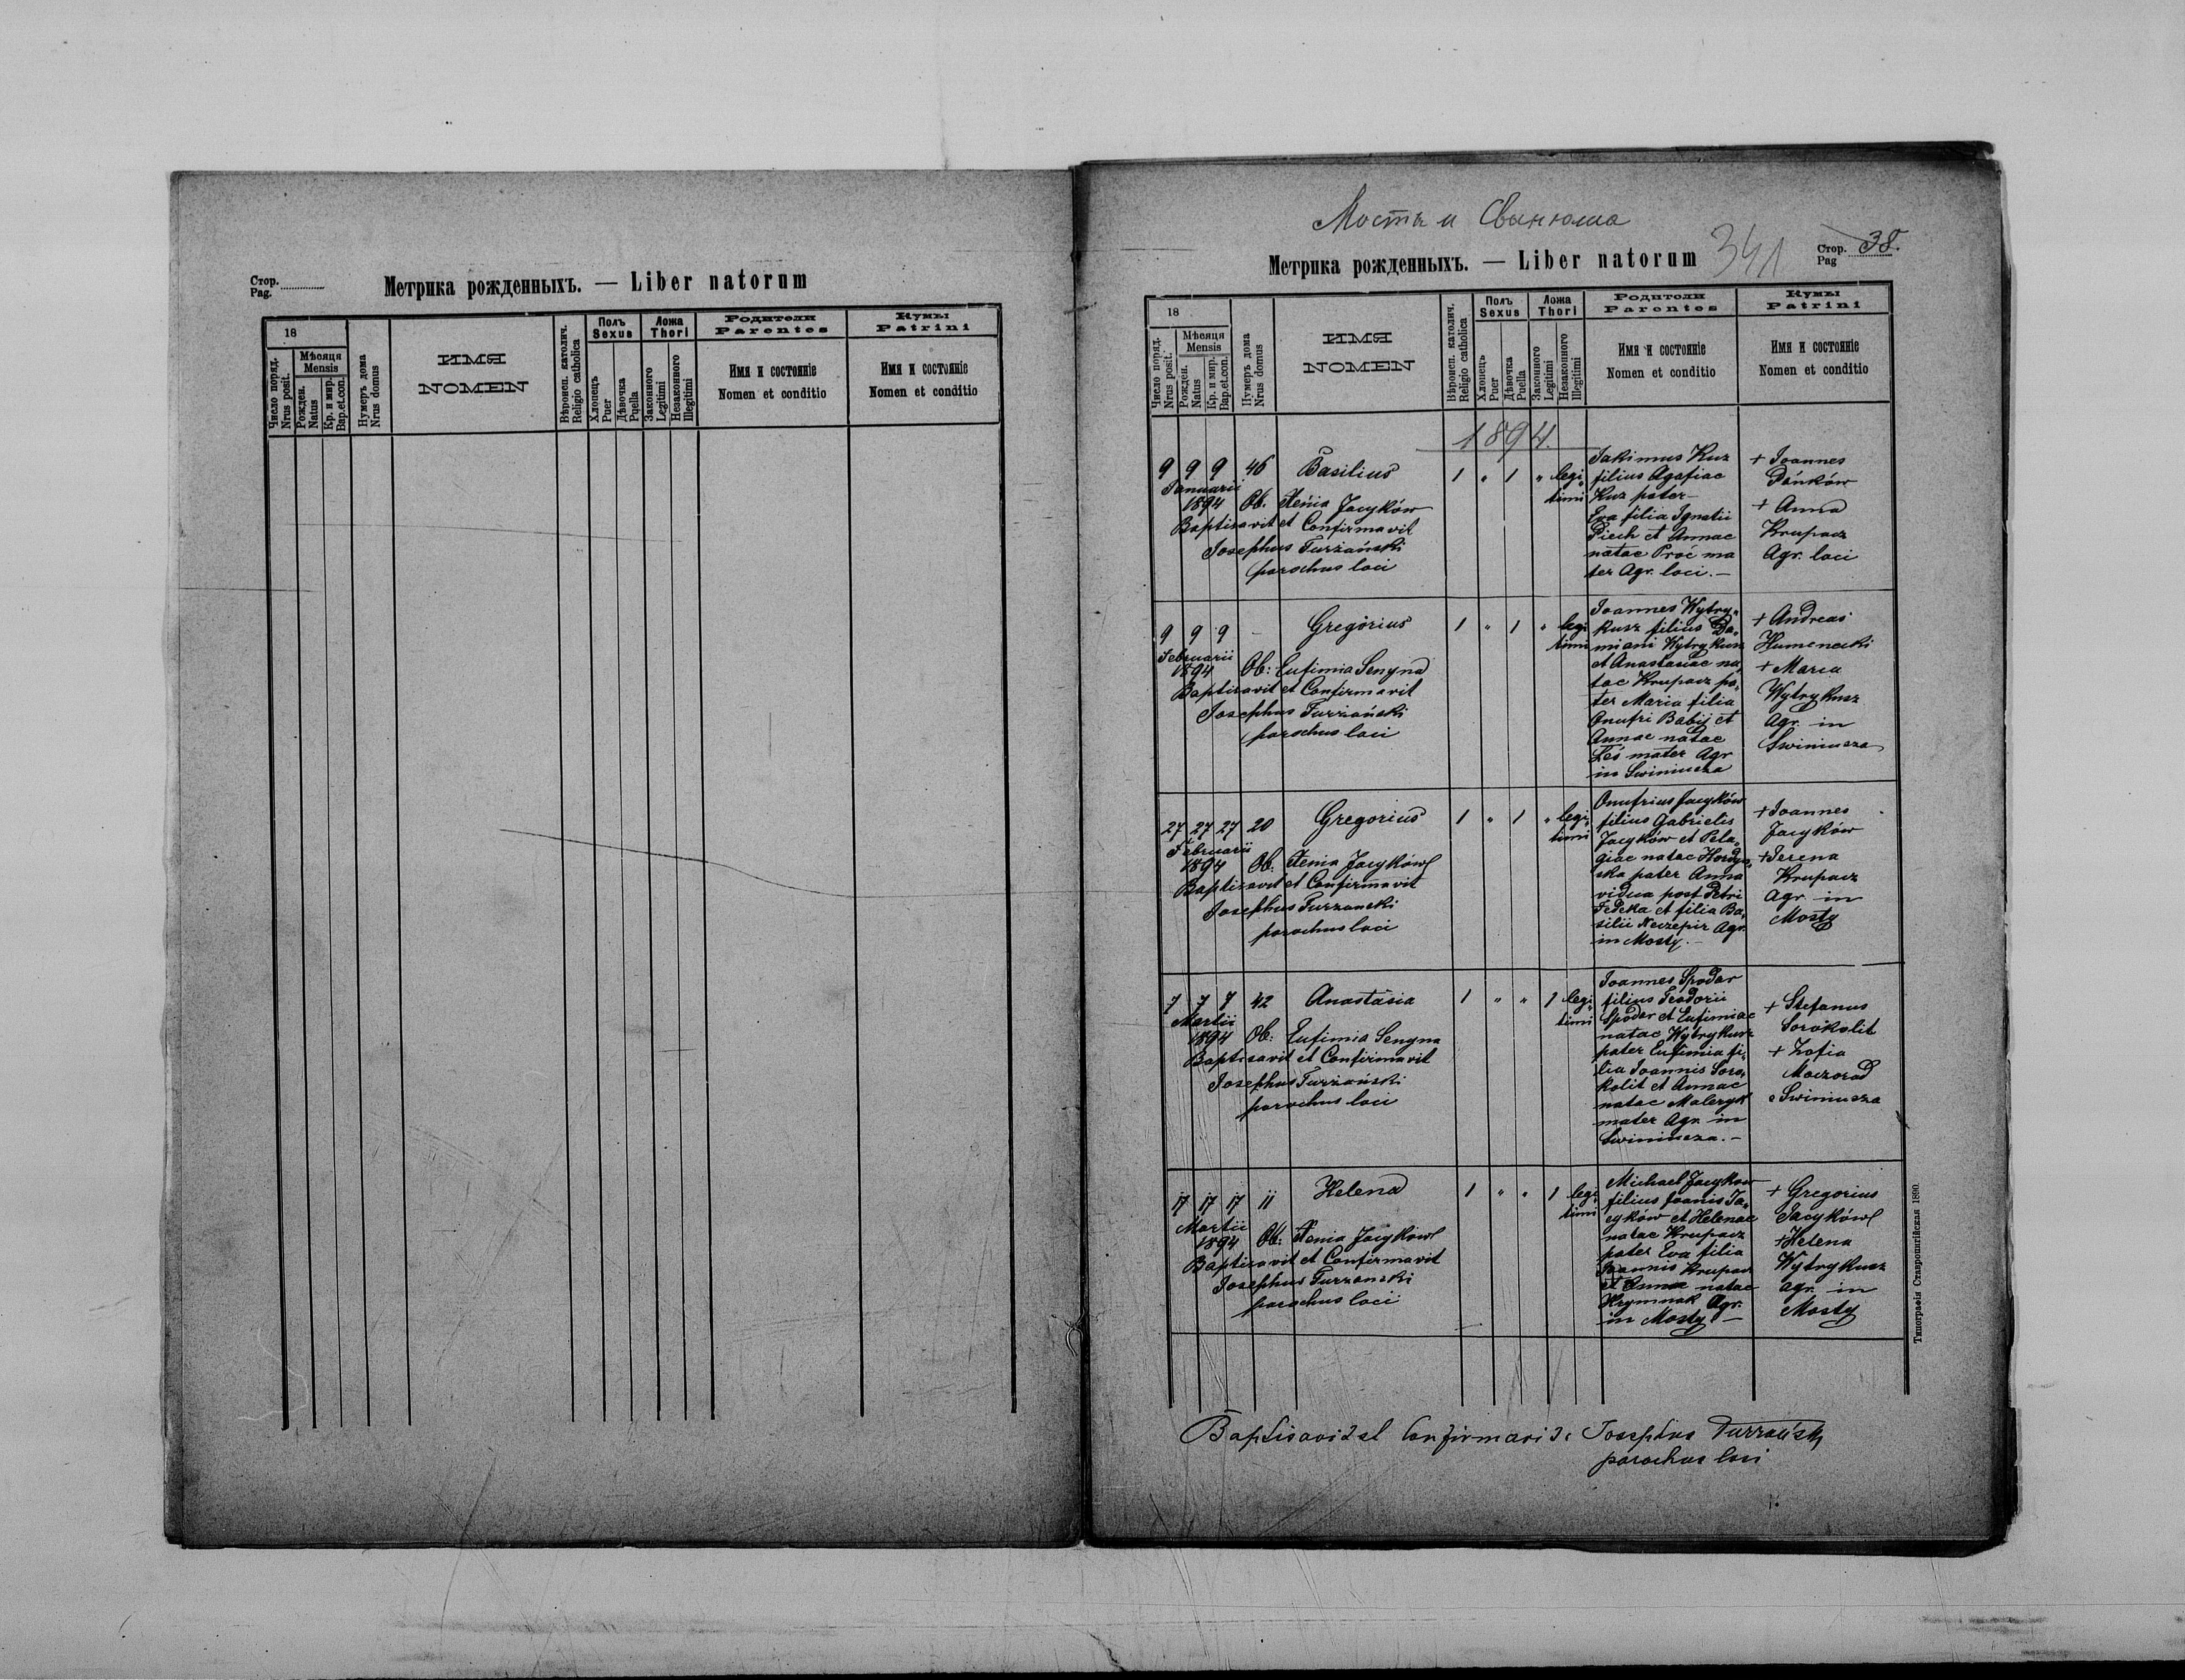 Стор.
Pag.
Метрика рожденныхъ. — Liber natorum
18
Число поряд.
Nrus posit.
Мѣсяця
Mensis
Рожден.
Natus
Кр. и мир.
Bap.et.con.
Нумеръ дома
Nrus domus
ИМЯ
NOMEN
Вѣронсп. католич.
Religio catholica
Полъ
Sexus
Хлопецъ
Puer
Дѣвочка
Puella
Ложа
Thori
Законного
Legitimi
Незаконного
Illegitimi
Родители
Parentes
Имя и состояніе
Nomen et conditio
Кумы
Patrini
Имя и состояніе
Nomen et conditio
Мосты и
341
Метрика рожденныхъ. — Liber natorum
Стор. 38.
Pag
18
Число поряд.
Nrus posit.
Мѣсяця
Mensis
Рожден.
Natus
Кр. и мир.
Bap.et.con.
Нумеръ дома
Nrus domus
ИМЯ
NOMEN
Вѣронсп. католич.
Religio catholica
Полъ
Sexus
Хлопецъ
Puer
Дѣвочка
Puella
Ложа
Thori
Законного
Legitimi
Незаконного
Illegitimi
Родители
Parentes
Имя и состояніе
Nomen et conditio
Кумы
Patrini
Имя и состояніе
Nomen et conditio
1894.
9 9 9 46 Basilius 1 " 1 " legi
timi
Januarii
1894 Ob. Xenia Jacyków
Baptisavit et Confirmavit
Josephus Turzański
parochus loci
Jakimus Kuz
filius Agafiae
Kuz pater –
Eva filia Ignatii
Piech et Annae
natae Proć ma
ter Agr. loci. –
+ Joannes
Dańków
+ Anna
Krupacz
Agr. loci
9 9 9 – Gregorius 1 " 1 " legi
timi
Februarii
1894 Ob: Eufimia Senyna
Baptisavit et Confirmavit
Josephus Turzański
parochus loci
Joannes Wytry„
kusz filius Da„
miani Wytrykusz
et Anastasiae na„
tae Krupacz pa„
ter Maria filia
Onufri Babij et
Annae natae
Łeś mater Agr
in Swiniusza
+ Andreas
Humenecki
+ Maria
Wytrykusz
Agr. in
Swiniusza
27 27 27 20 Gregorius 1 " 1 " legi„
timi
Februarii
1894 Ob: Xenia Jacyków
Baptisavit et Confirmavit
Josephus Turzanski
parochus loci
Onufrius Jacyków
filius Gabrielis
Jacyków et Pela„
giae natae
ska pater Anna
vidua post Petri
Fedeka et filia Ba„
silii Neczepir Agr.
in Mosty. –
+ Joannes
Jacyków
+
Krupacz
Agr. in
Mosty
7 7 7 42 Anastasia 1 " " 1 legi„
timi
Martii
1894 Ob: Eufimia Senyna
Baptisavit et Confirmavit
Josephus Turzański
parochus loci
Joannes Spodar
filius Teodorii
Spodar et Eufimiae
natae Wytrykusz
pater Eufimia fi„
lia Joannis Soro„
kolit et Annae
natae Maleryk
mater Agr. in
Swiniusza. –
+ Stefanus
Sorokolit
+ Zofia
Moczorad
Swiniusza
17 17 17 11 Helena 1 " " 1 legi„
timi
Martii
1894 Ob: Xenia Jacyków
Baptisavit et Confirmavit
Josephus Turzanski
parochus loci
Michael Jacykow
filius Joanis Ja„
cyków et Helenae
natae Krupacz
pater Eva filia
Joannis Krupacz
et Anna natae
Hrymnak Agr.
in Mosty –
+ Gregorius
Jacyków
+ Helena
Wytrykusz
agr. in
Mosty
Baptisavit et Confirmavit: Josephus Turzański
parochus loci
Типографія Ставропигійская 1890.